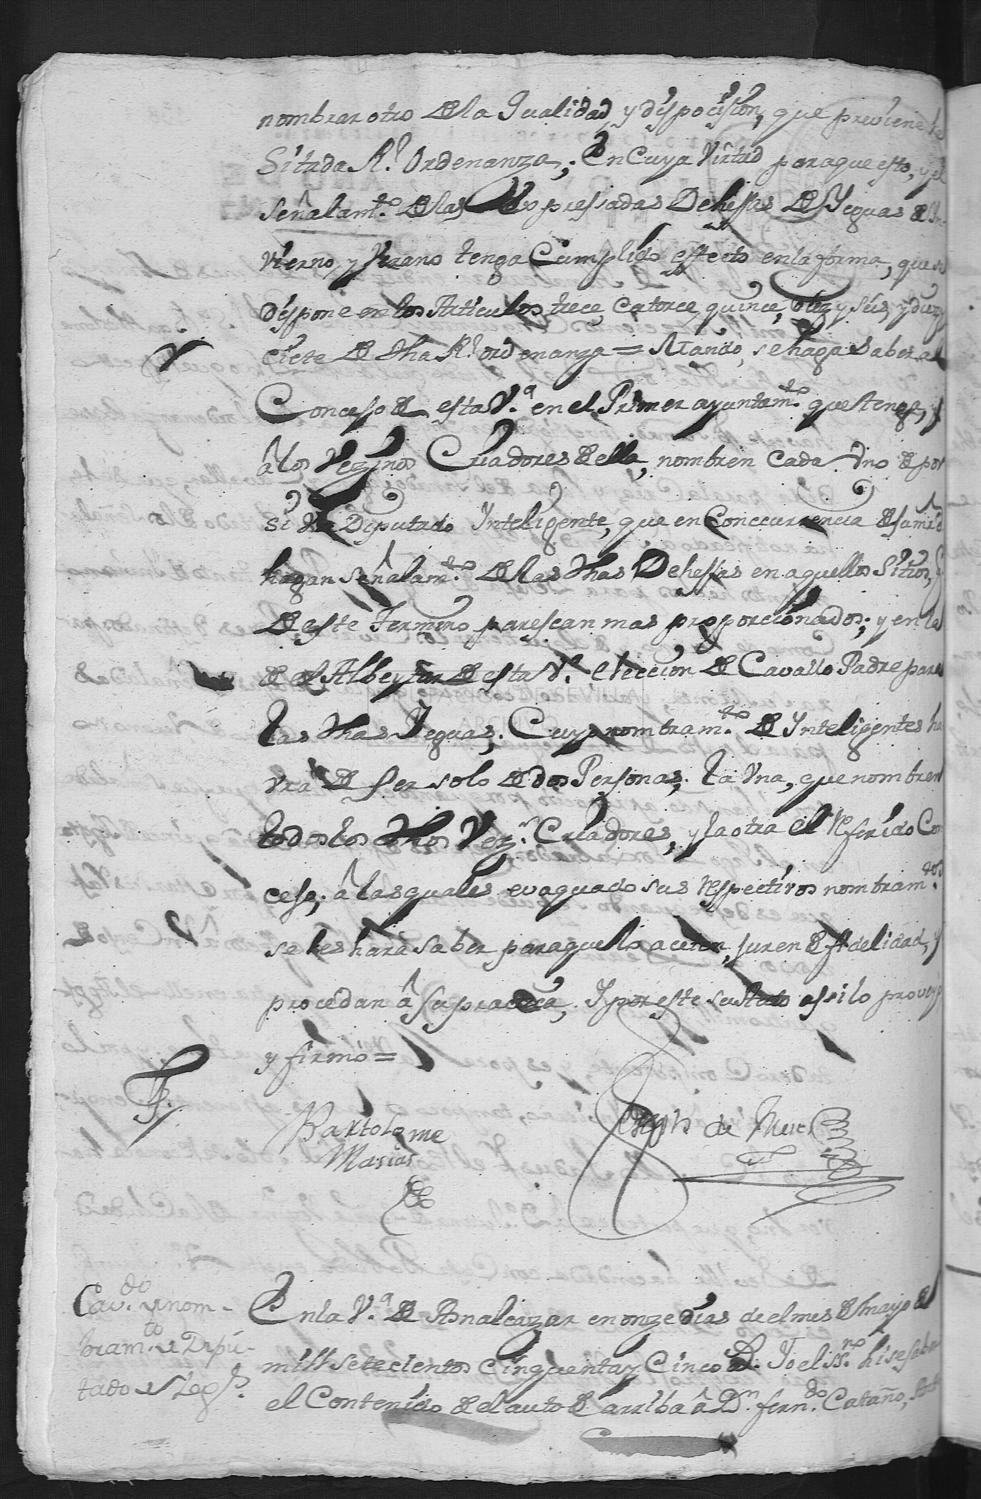 nombrar otro de la Qualidad y dispocision, que previene la
Sitada Rl. Ordenanza; En Cuya Virtud para que esto, y el
señalamto. de las expressadas Dehesas de Yeguas de Yn-
vierno, y Verano tenga Cumplido effecto en la forma, que se
dispone en los Articulos trece, catorce, quince, diez y seis, y diez y
ciete de dha Rl. ordenanza = Mando, se haga saber al
Concejo de esta Va. en el Primer ayuntamto. que stenga, y
â los Vezinos Criadores de ella, nombren cada Uno de por
si Un Diputado Inteligente, que en Conccurrencia de su mrd
hagan señalamto. de las dhas Dehesas en aquellos Sitios, q
de este Termino parescan mas proporcionados; y en la
de el Albeytar de esta Va. eleccion de Cavallo Padre para
las dhas Yeguas; Cuyo nombramto. de Ynteligentes ha
vra de ser solo de dos Personas; la Vna, que nombren
todos los dhos Vezs. Criadores, y la otra el Referido Con
cejo; â las quales evaquado sus respectivos nombramtos.
se les hará saber para que lo acepten, juren de fidelidad, y
procedan â su practica; Y por este su Auto assi lo proveyo
y firmó =
Bartolome
Masias
Joseph de
Cavdo. y nom-
bramto. de Dipu-
tado
En la Va. de Asnalcazar en onze dias de el mes de Mayo de
mill setecientos cinquenta y Cinco as. Yo el ssno. hise saber
el Contenido de el auto de arriba â Dn. ferndo. Cataño,